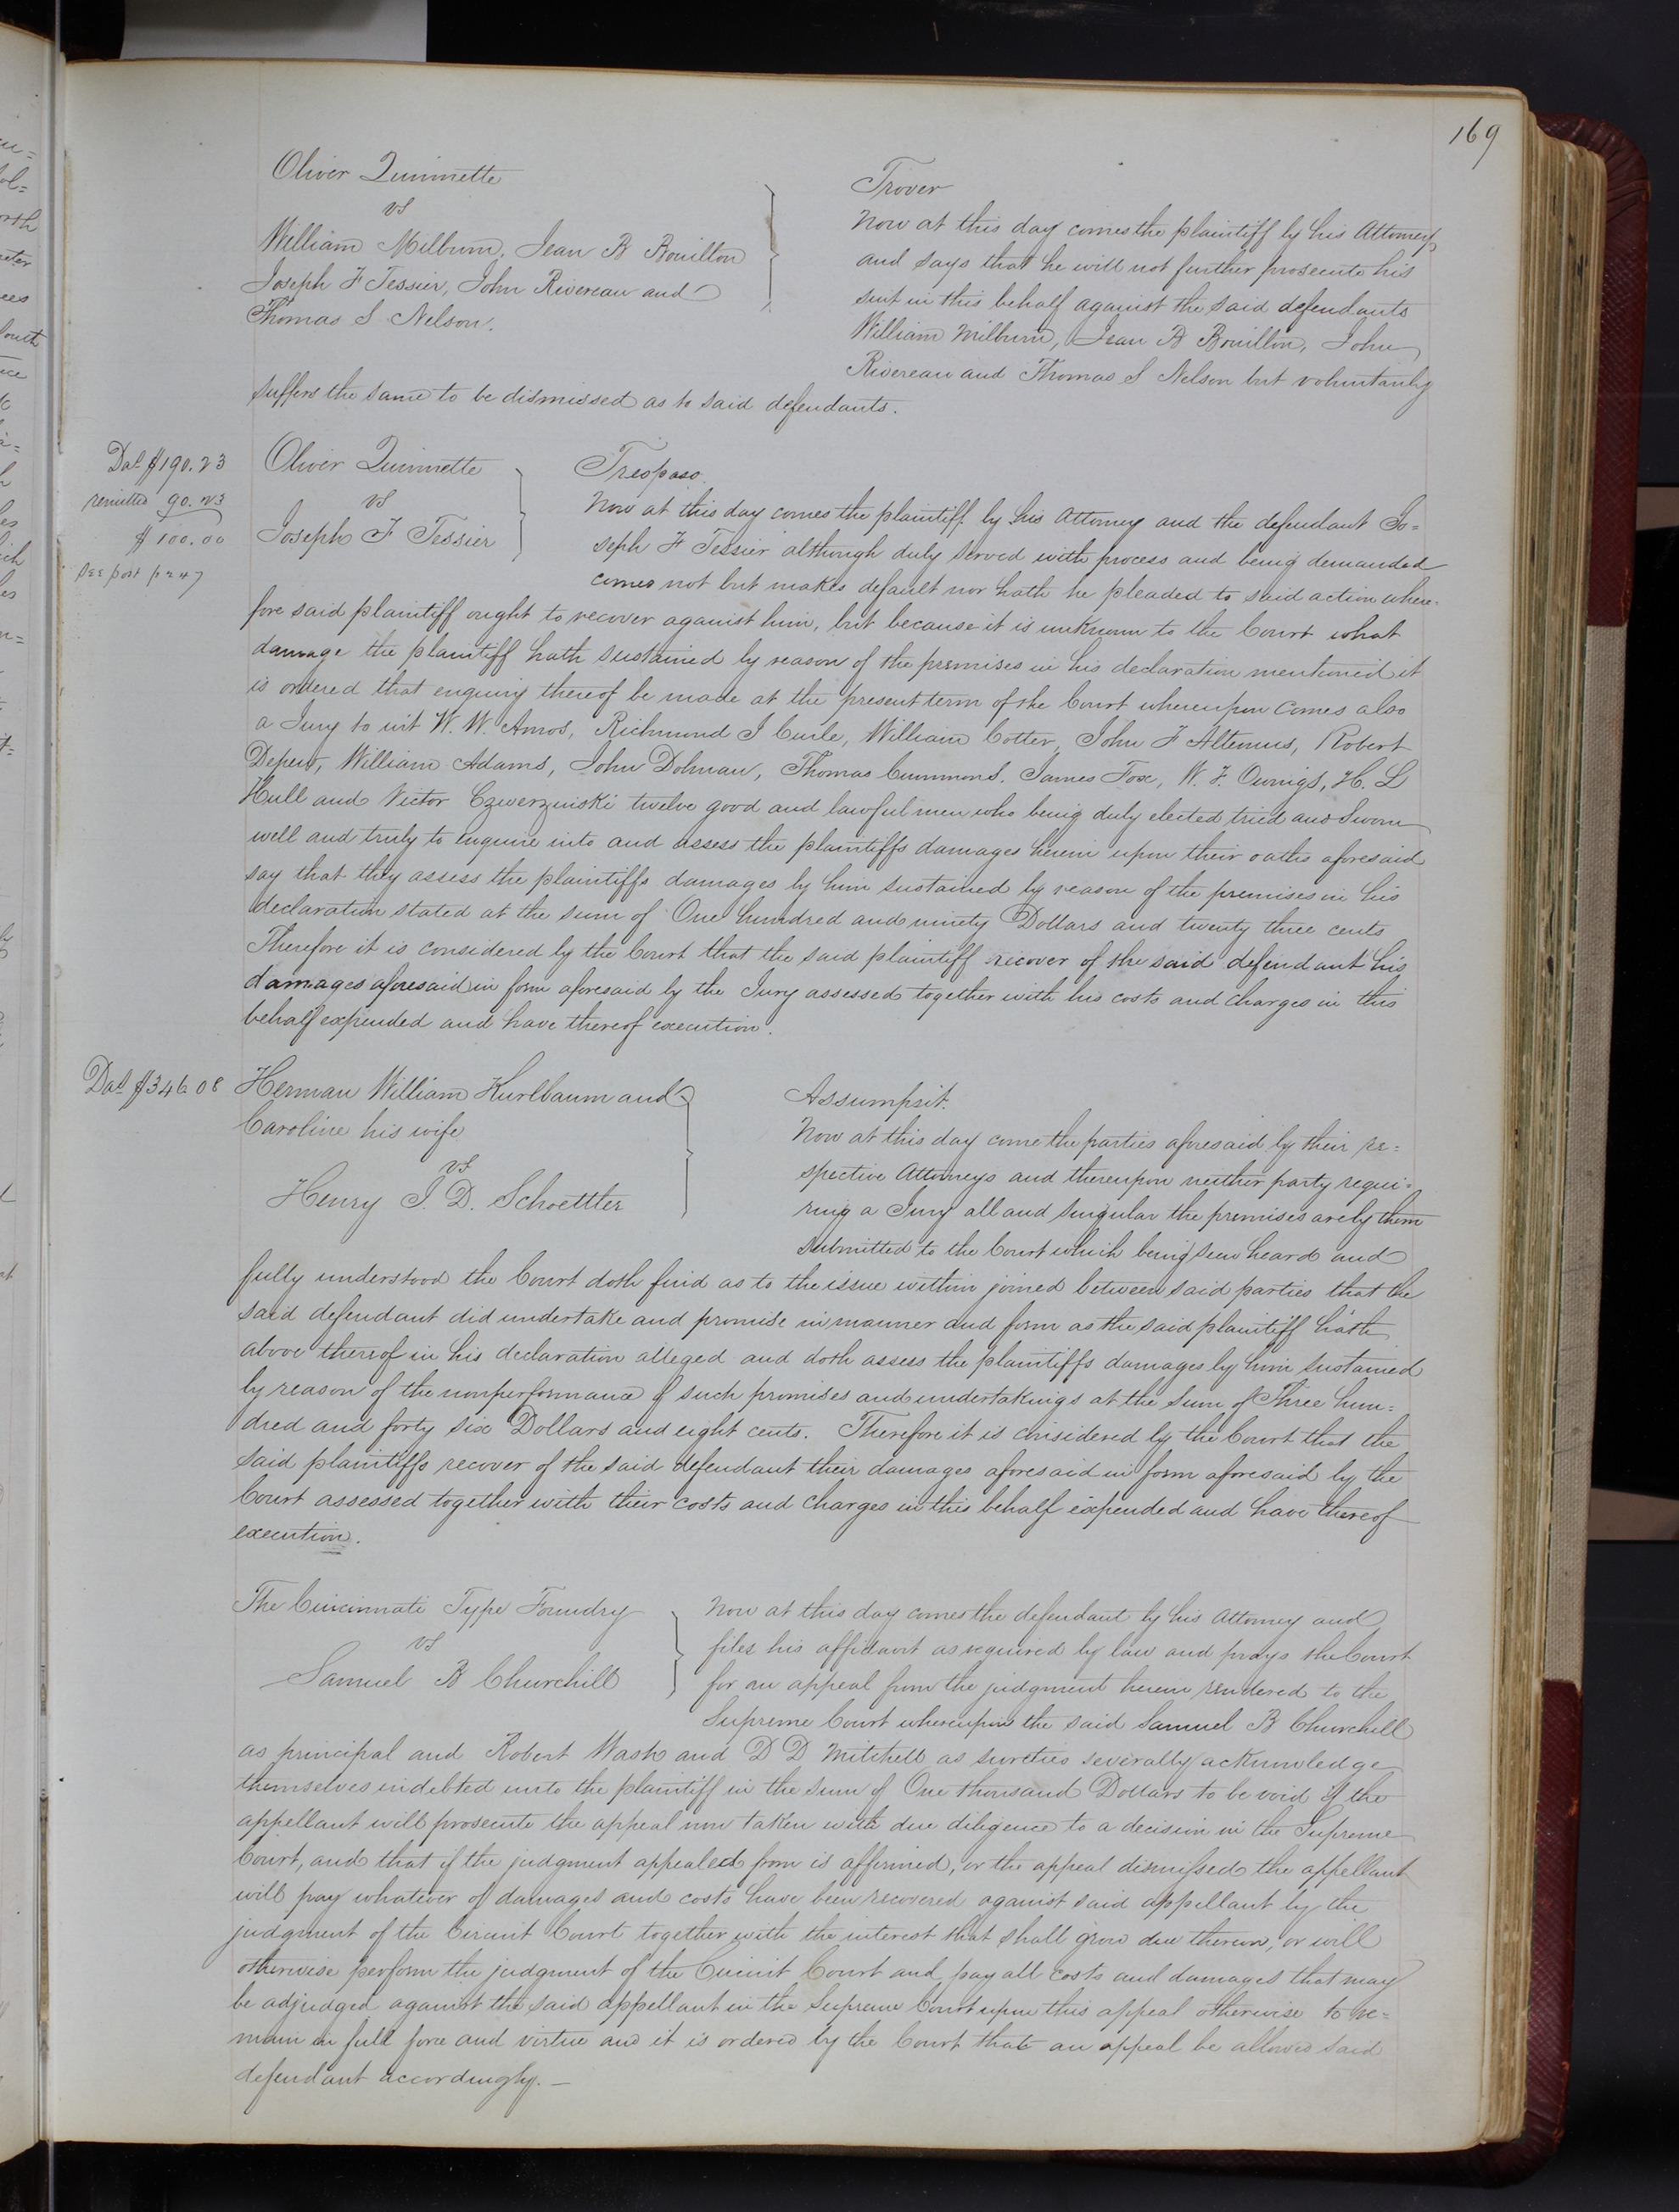 169
Oliver Quinnette
vs
William Milburn, Jean B Bouillon
Joseph F Tessier, John Rivereau and
Thomas S Nelson.
Trover
Now at this day comes the plaintiff by his Attorney
and says that he will not further prosecute his
suit in this behalf against the said defendants
William Milburn, Jean B Bouillon, John
Rivereau and Thomas S Nelson but voluntarily
suffers the same to be dismissed as to said defendants.
Das $190.23
remitted 90.23
$100.00
see post p 247
Oliver Quinnette
vs
Joseph F Tessier
Trespass.
Now at this day comes the plaintiff by his Attorney and the defendant Jo=
seph F Tessier although duly served with process and being demanded
comes not but makes default nor hath he pleaded to said action where-
fore said plaintiff ought to recover against him, but because it is unknown to the Court what
damage the plaintiff hath sustained by reason of the premises in his declaration mentioned it
is ordered that enquiry thereof be made at the present term of the Court whereupon comes also
a Jury to wit W. W. Amos, Richmond J Curle, William Cotter, John F Altemus, Robert
Depew, William Adams, John Dolman, Thomas Cummons. James Fox, W. F. Owings, H. L
Hull and Victor Czwerzinski twelve good and lawful men who being duly elected tried and Sworn
well and truly to enquire into and assess the plaintiffs damages herein upon their oaths aforesaid
say that they assess the plaintiffs damages by him sustained by reason of the premises in his
declaration stated at the sum of One hundred and ninety Dollars and twenty three cents
Therefore it is considered by the Court that the said plaintiff recover of the said defendant his
damages aforesaid in form aforesaid by the Jury assessed together with his costs and charges in this
behalf expended and have thereof execution.
Das $346 08
Herman William Kurlbaum and
Caroline his wife
vs
Henry J. D. Schoettler
Assumpsit.
Now at this day come the parties aforesaid by their re=
spective Attorneys and thereupon neither party requi=
ring a Jury all and singular the premises are by them
submitted to the Court which being seen heard and
fully understood the Court doth find as to the issue within joined between said parties that the
said defendant did undertake and promise in manner and form as the said plaintiff hath
above thereof in his declaration alleged and doth assess the plaintiffs damages by him sustained
by reason of the nonperformance of such promises and undertakings at the Sum of Three hun=
dred and forty six Dollars and eight cents. Therefore it is considered by the Court that the
said plaintiffs recover of the said defendant their damages aforesaid in form aforesaid by the
Court assessed together with their costs and charges in this behalf expended and have thereof
execution.
The Cincinnati Type Foundry
vs
Samuel B Churchill
Now at this day comes the defendant by his Attorney and
files his affidavit as required by law and prays the Court
for an appeal from the judgment herein rendered to the
Supreme Court whereupon the said Samuel B Churchill
as principal and Robert Wash and D D Mitchell as sureties severally acknowledge
themselves indebted unto the plaintiff in the sum of One thousand Dollars to be void if the
appellant will prosecute the appeal now taken with due diligence to a decision in the Supreme
Court, and that if the judgment appealed from is affirmed, or the appeal dismissed the appellant
will pay whatever of damages and costs have been recovered against said appellant by the
judgment of the Circuit Court together with the interest that shall grow due thereon, or will
otherwise perform the judgment of the Circuit Court and pay all costs and damages that may
be adjudged against the said appellant in the Supreme Court upon this appeal otherwise to re=
main in full force and virtue and it is ordered by the Court that an appeal be allowed said
defendant accordingly. —